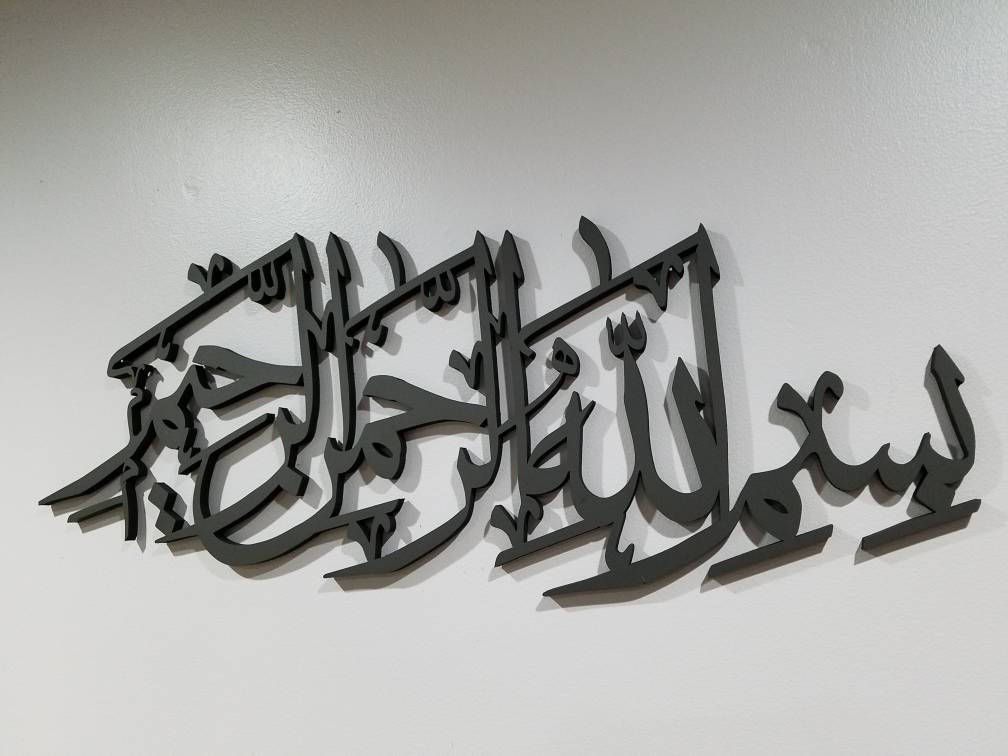 بِسْمِ اللّٰهُ الرَّحْمٰنِ الرَّحِيْمِ